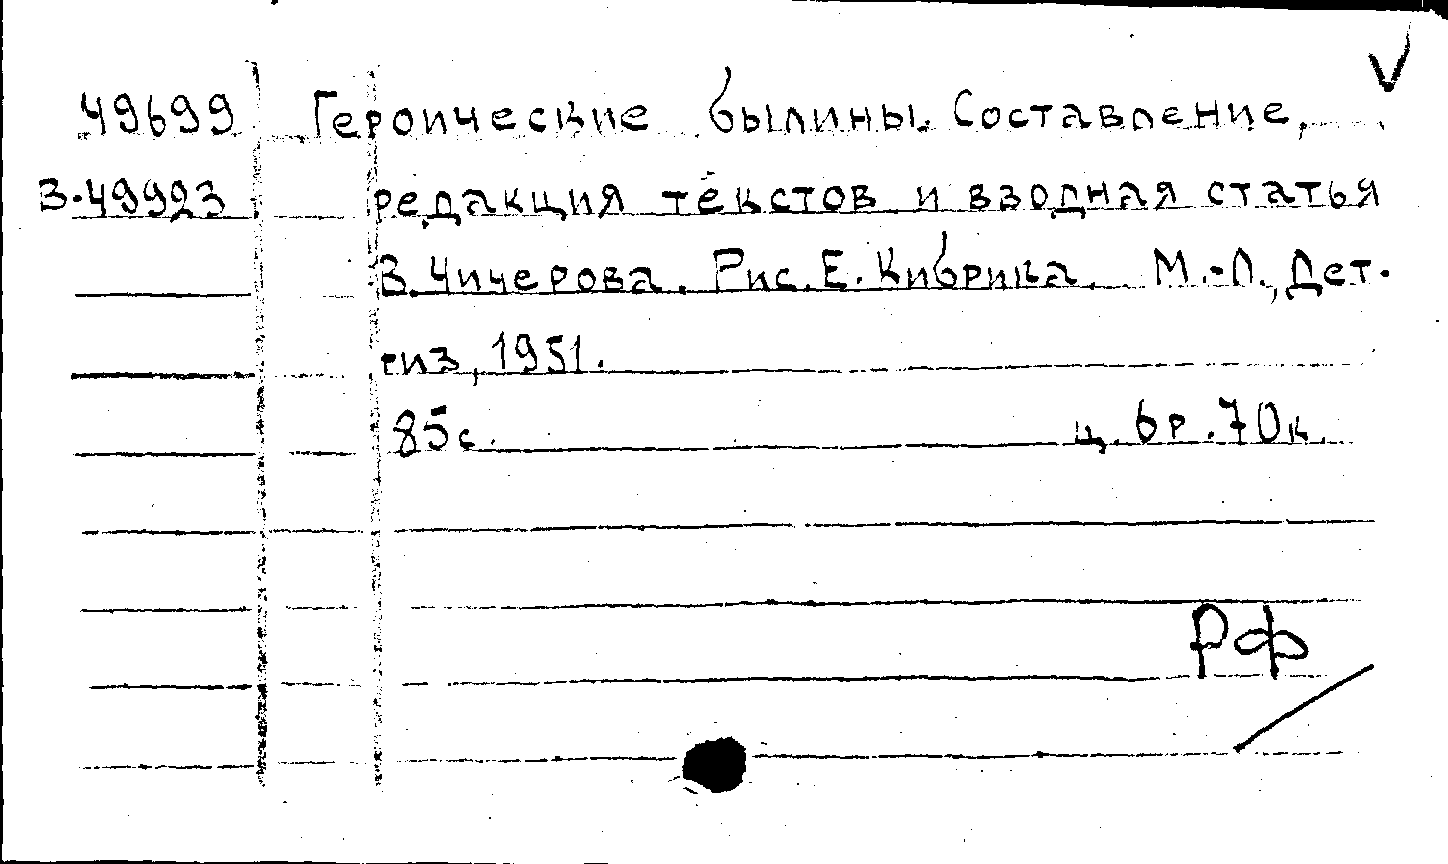 V
49699 Героические былины. Составление,
В.49923 редакция текстов и вводная статья
В. Чичерова. Рис. Е. Кибрика. М.-Л., Дет-
гиз, 1951.
85 с. ц. 6 р. 70 к.
РФ